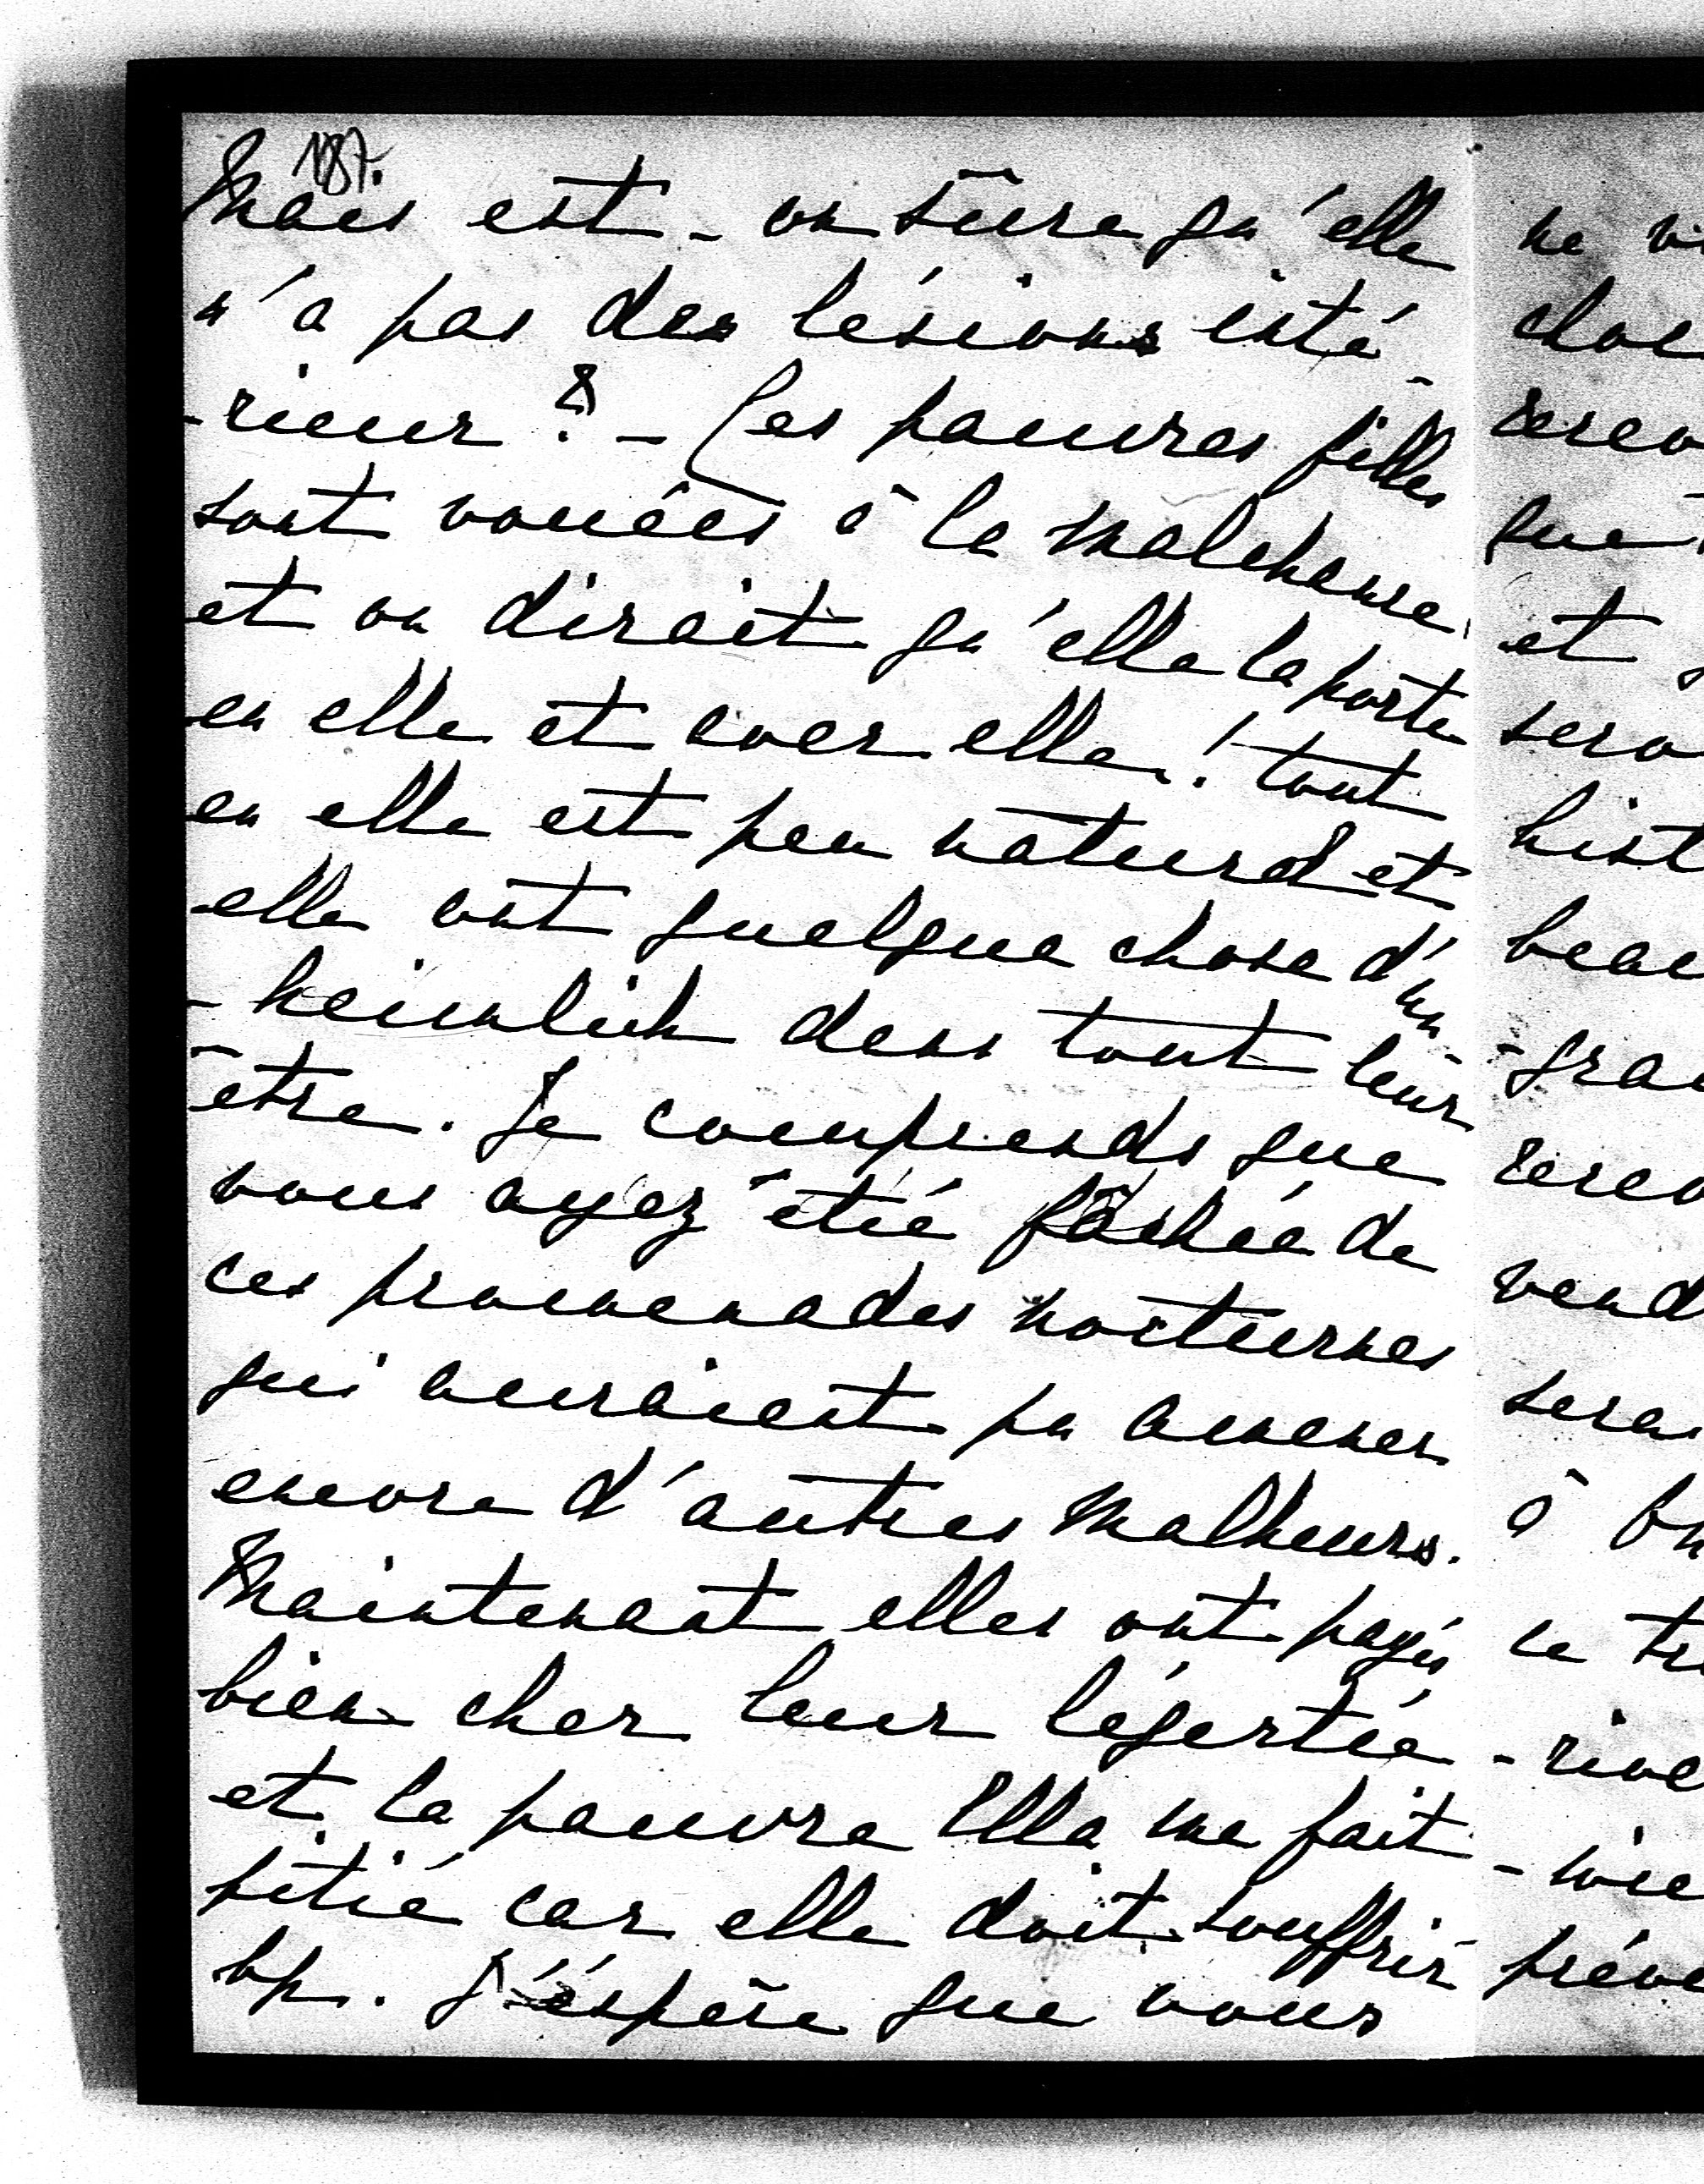 187.
Mais est-on sûre qu'elle
n'a pas des lésions inté-
-rieur? - Ces pauvres filles
sont vouées à la malchance,
et on dirait qu'elle la porte
en elle et avec elle! tout
en elle est peu naturel et
elle ont quelque chose d'un-
-heimlich dans tout leur
être. Je comprends que
vous ayez étié fâchée de
ces promenades nocturnes
qui auraient pu amener
encore d'autres malheurs.
Maintenant elles ont payés
bien cher leur légertée
et la pauvre Ella me fait
pitié car elle doit souffrir
bp. J'éspère que vous